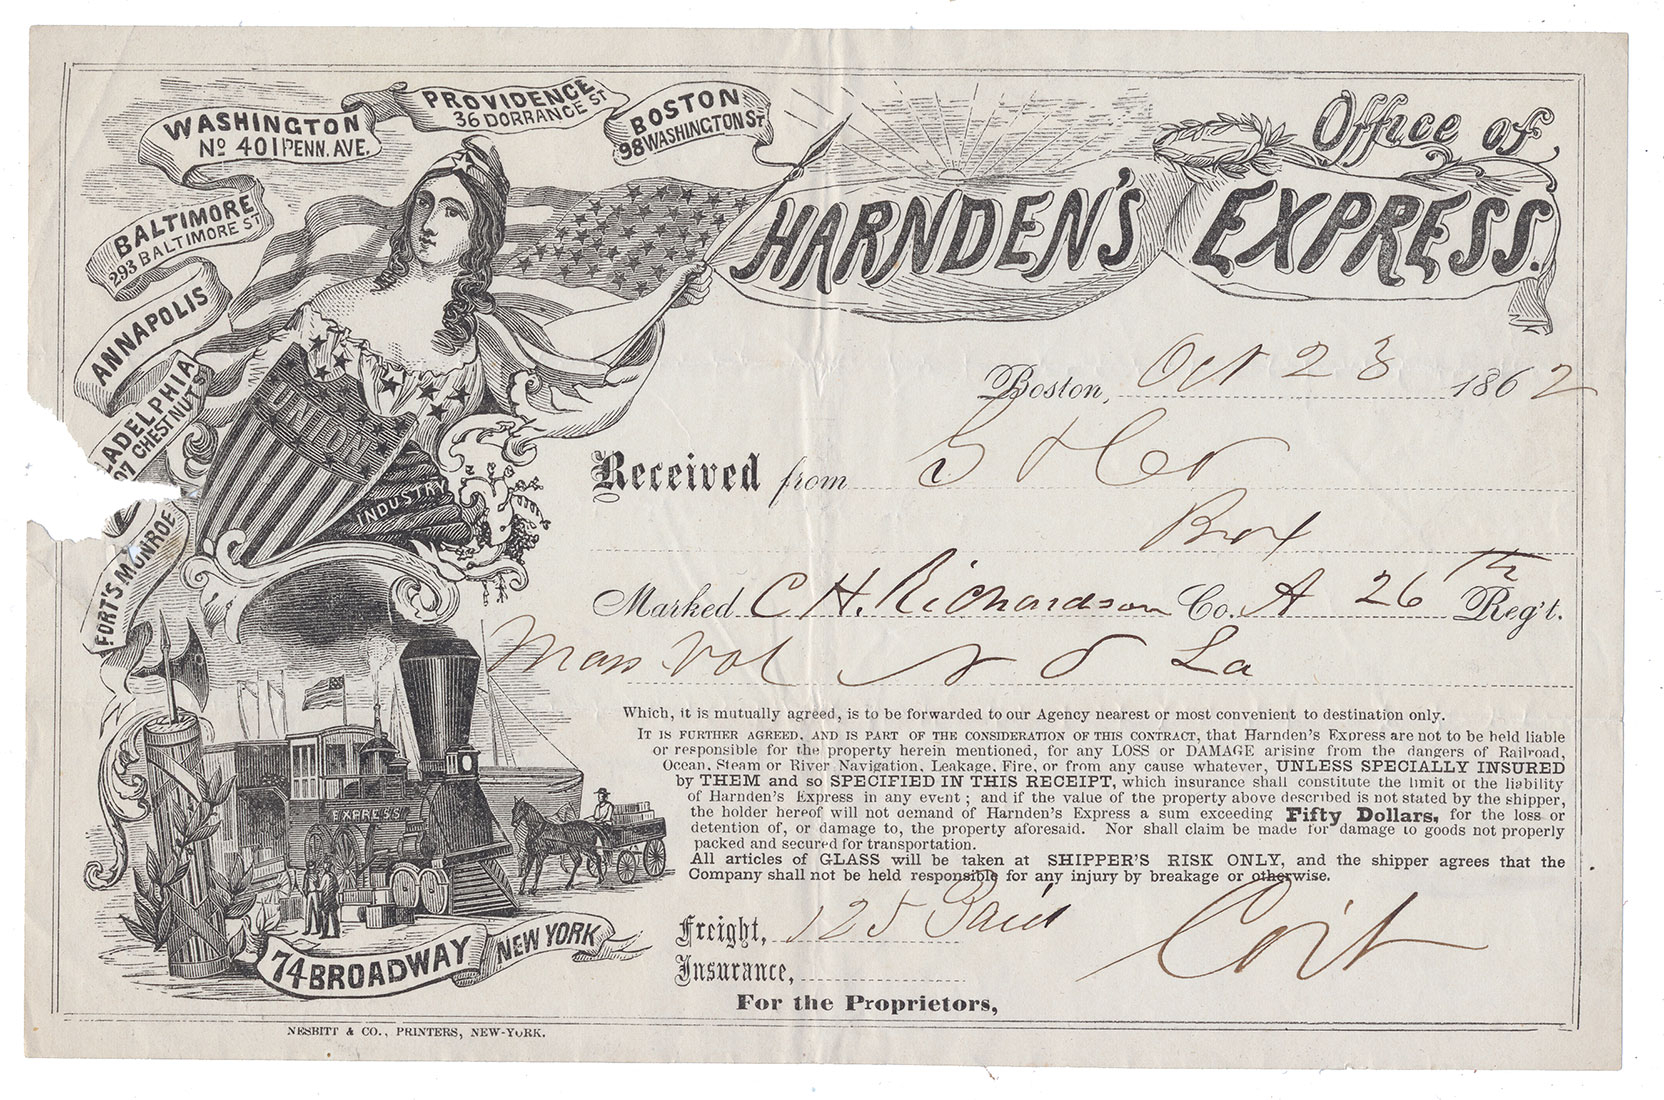 WASHINGTON
No 401 PENN. AVE.
PROVIDENCE
36 DORRANCE ST
BOSTON
98 WASHINGTON ST
BALTIMORE
293 BALTIMORE ST
ANNAPOLIS
LADELPHIA
07 CHESTNUT S
FORT'S MUNROE
UNION
INDUSTRY
EXPRESS
74 BROADWAY NEW YORK
Office of
HARNDEN'S EXPRESS.
Boston, Oct 23 1862
Received from
Box
Marked C H. Richardson Co. A 26th Reg't.
Mass Vol N O La
Which, it is mutually agreed, is to be forwarded to our Agency nearest or most convenient to destination only.
IT IS FURTHER AGREED, AND IS PART OF THE CONSIDERATION OF THIS CONTRACT, that Harnden's Express are not to be held liable
or responsible for the property herein mentioned, for any LOSS or DAMAGE arising from the dangers of Railroad,
Ocean, Steam or River Navigation, Leakage, Fire, or from any cause whatever, UNLESS SPECIALLY INSURED
by THEM and so SPECIFIED IN THIS RECEIPT, which insurance shall constitute the limit of the liability
of Harnden's Express in any event; and if the value of the property above described is not stated by the shipper,
the holder hereof will not demand of Harnden's Express a sum exceeding Fifty Dollars, for the loss or
detention of, or damage to, the property aforesaid. Nor shall claim be made for damage to goods not properly
packed and secured for transportation.
All articles of GLASS will be taken at SHIPPER'S RISK ONLY, and the shipper agrees that the
Company shall not be held responsible for any injury by breakage or otherwise.
Freight, 125 Paid
Insurance,
Coit
For the Proprietors,
NESBITT & CO., PRINTERS, NEW-YORK.